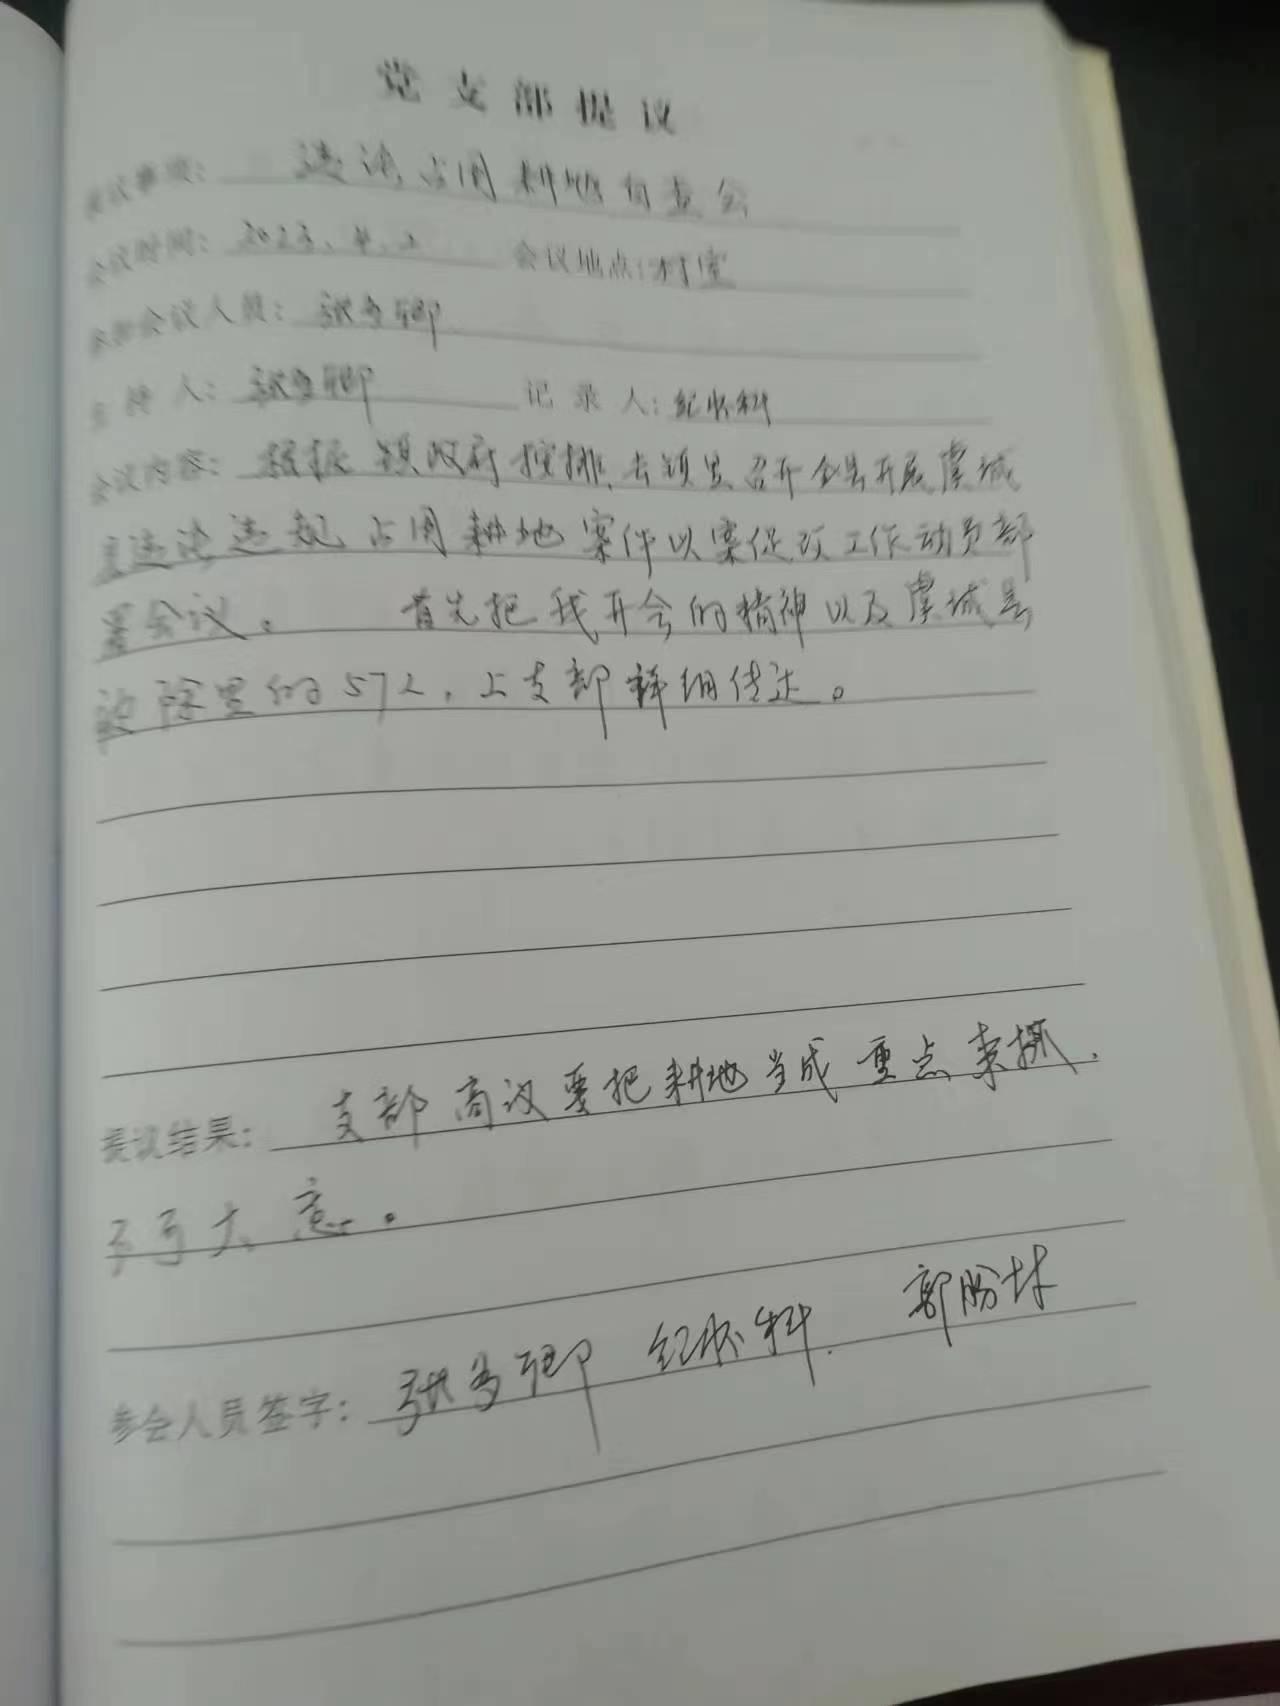 党支部提议
提议事项：违法占用耕地自查会
会议时间：2023.4.2 会议地点：村室
参加会议人员：张多卿
主持人：张多卿 记录人：纪水科
会议内容：根据镇政府按排，去镇里召开全县开展虞城
县违法违规占用耕地案件以案促改工作动员部
署会议。 首先把我开会的精神以及虞城县
处里的572，上支部详细传达。
提议结果：支部商议要把耕地当成重点来抓，
不可大意。
参会人员签字：张多卿 纪水科 郭盼林